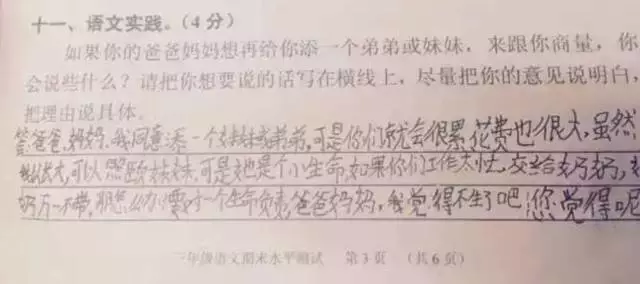 十一、语文实践。(4分)
如果你的爸爸妈妈想再给你添一个弟弟或妹妹,来跟你商量,你
会说些什么?请把你想要说的话写在横线上,尽量把你的意见说明白,
把理由说具体。
答:爸爸,妈妈,我同意添一个妹妹或弟弟,可是你们就会很累,花费也很大,虽然
长大,可以照顾妹妹,可是她是个小生命,如果你们工作太忙,交给奶奶,
奶万一不带,那怎么办,要对一个生命负责,爸爸妈妈,我觉得不生了吧,您觉得呢
三年级语文期末水平测试 第3页 (共6页)